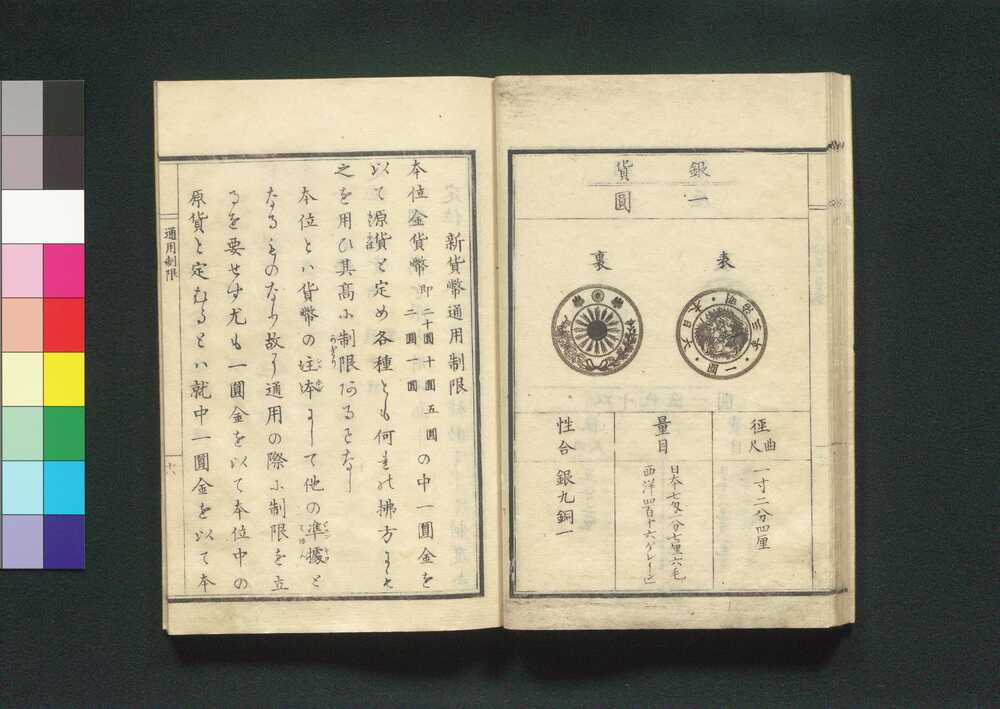 銀貨
一圓
表
裏
三年
明治
大日本
一圓
徑曲尺
一寸二分四厘
量目
日本七匁二分七厘六毛
西洋四百十六グレーン
性合
銀九銅一
新貨幣通用制限
本位金貨幣即二十圓十圓五圓二圓一圓の中一圓金を
以て源貨と定め各種とも何れの拂方にも
之を用ひ其高に制限かぎりあることなし
本位とハ貨幣の主本にして他の準據と
なるものなり故に通用の際に制限を立
るを要せす尤も一圓金を以て本位中の
原貨と定むるとハ就中一圓金を以て本
通用制限